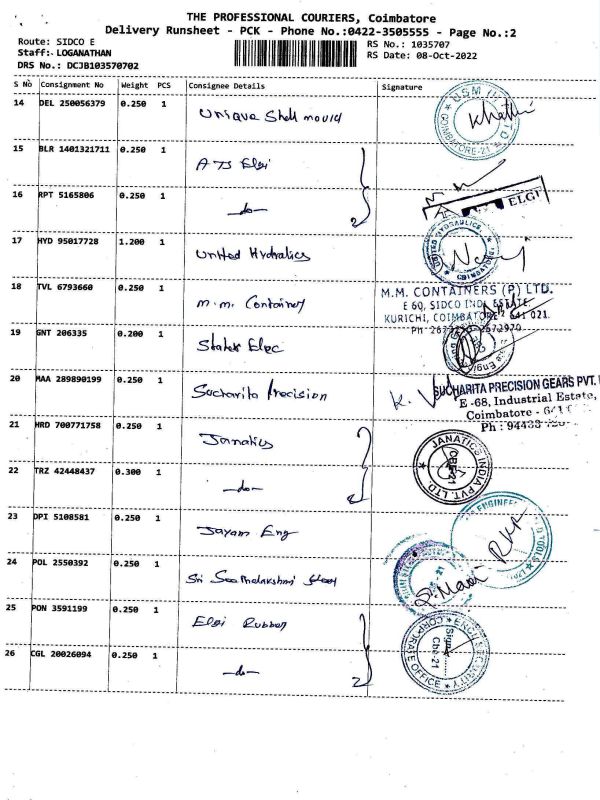 THE PROFESSIONAL COURIERS, Coimbatore
Delivery Runsheet - PCK - Phone No.:0422-3505555 - Page No.:2
Route: SIDCO E
Staff: LOGANATHAN
DRS No.: DCJB103570702
RS No.: 1035707
RS Date: 08-Oct-2022
S No Consignment No Weight PCS Consignee Details Signature
14 DEL 250056379 0.250 1 Unique Shell mould
USM
COIMBATORE-21
15 BLR 1401321711 0.250 1 ATS Elgi
16 RPT 5165806 0.250 1 -do- 2
ELGI
17 HYD 95017728 1.200 1 United Hydralics
UNITED HYDRAULICS
COIMBATORE
18 TVL 6793660 0.250 1 M.M. Container
M.M. CONTAINERS (P) LTD.
E 60, SIDCO IND. ESTATE,
KURICHI, COIMBATORE - 641 021.
19 GNT 206335 0.200 1 States Elec
20 MAA 289890199 0.250 1 Sucharita Precision
SUCHARITA PRECISION GEARS PVT.
E -68, Industrial Estate,
Coimbatore -
Ph : 94433
21 HRD 700771758 0.250 1 Janatics
22 TRZ 42448437 0.300 1 -do- 2
JANATICS INDIA PVT. LTD.
CBE-21
23 DPI 5108581 0.250 1 Jayam Eng
24 POL 2550392 0.250 1 Sri
25 PON 3591199 0.250 1 Elgi Rubber
26 CGL 20026094 0.250 1 -do- 2
SECURITY
CORPORATE OFFICE
Sign
Cbe-21